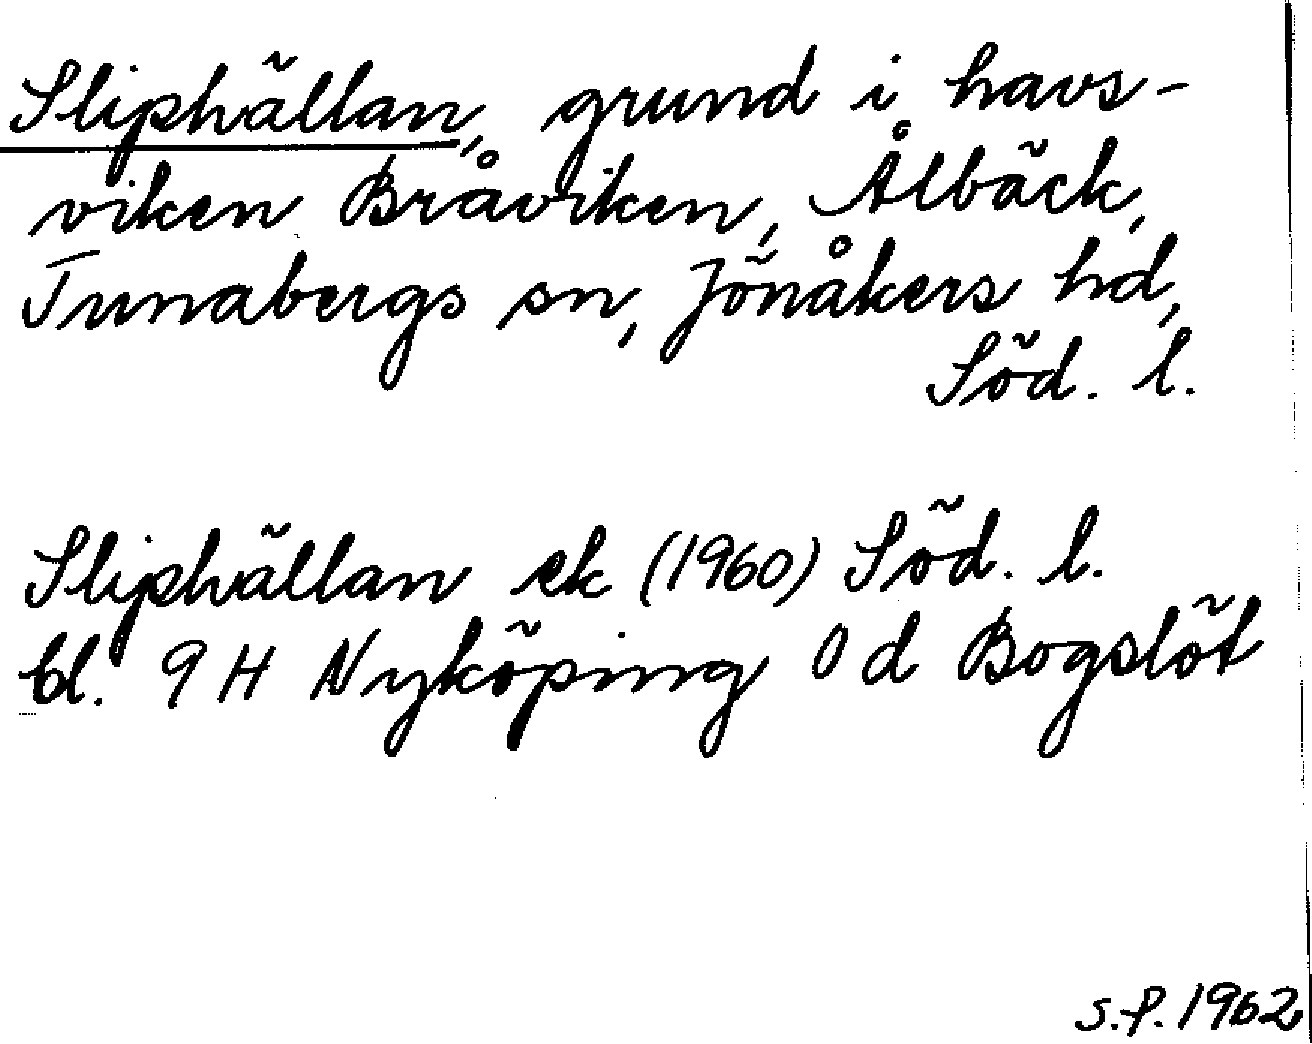 Sliphällan, grund i havs-
viken Bråviken, Ålbäck,
Tunabergs sn, Jönåkers hd,
Söd. l.
Sliphällan ek (1960) Söd. l.
bl. 9 H Nyköping 0 d Bogslöt
S.P. 1962